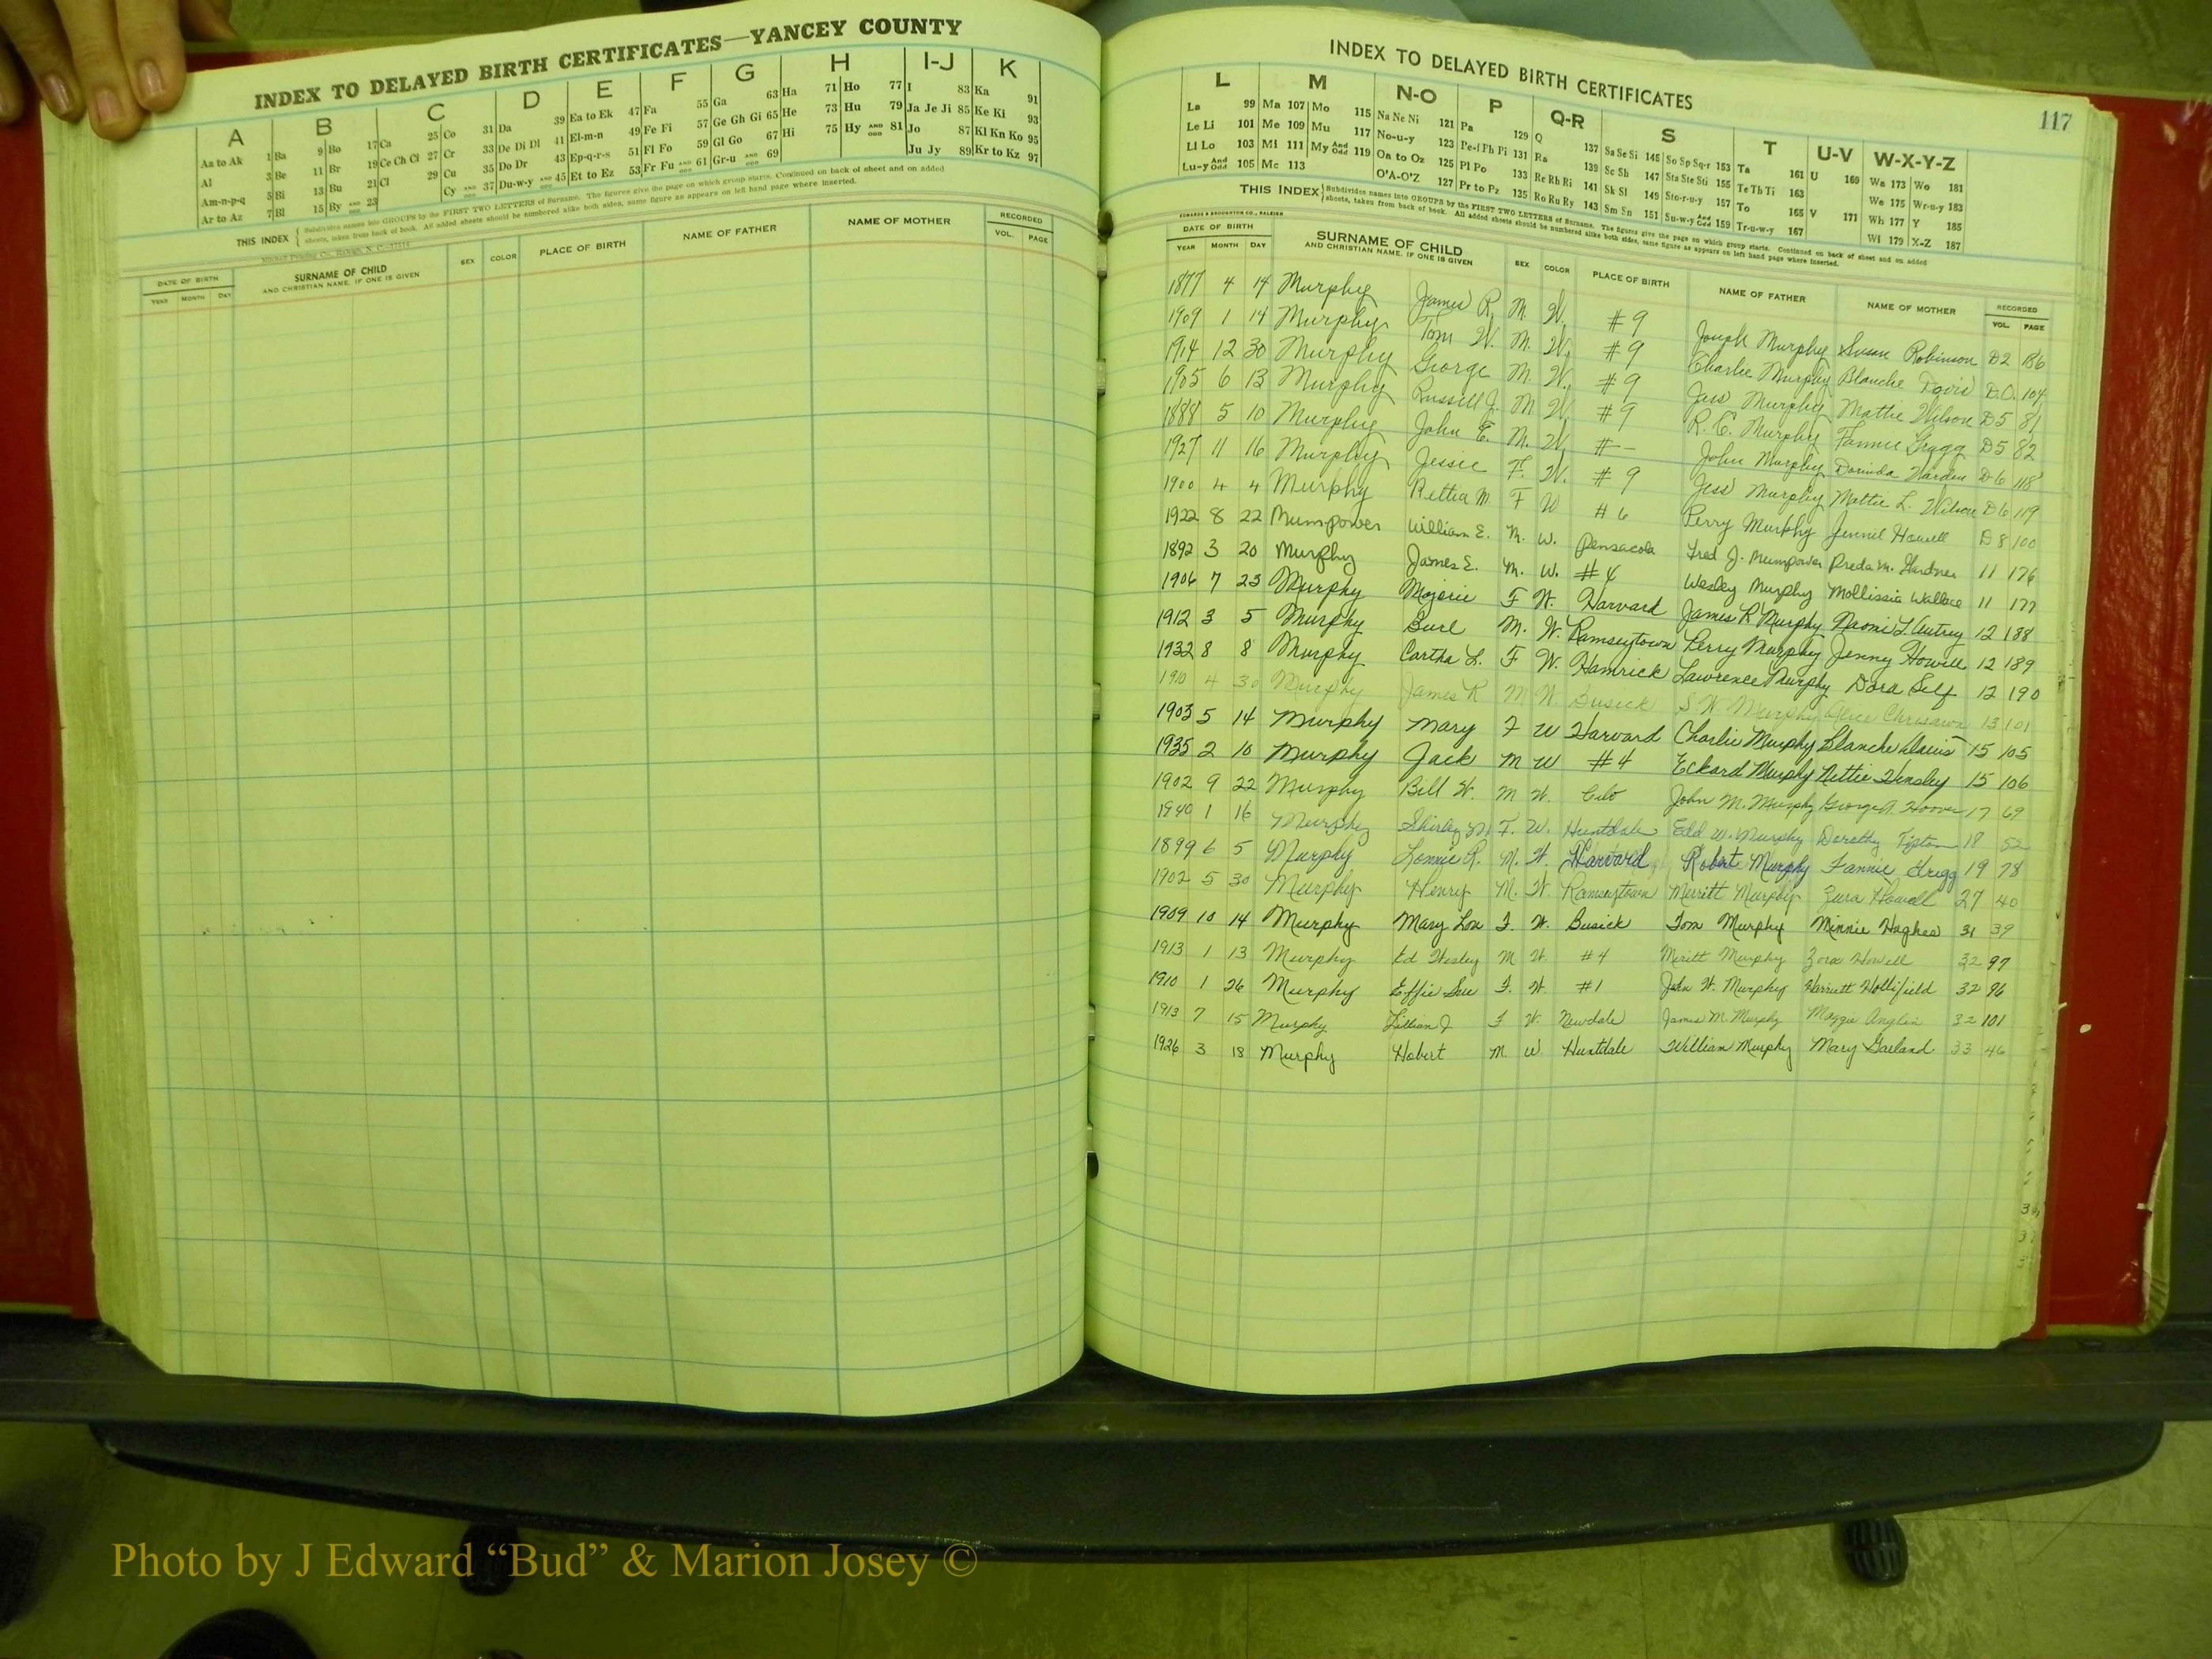 INDEX TO DELAYED BIRTH CERTIFICATES—YANCEY COUNTY
A B C D E F G H I-J K
Aa to Ak 1 Ba 9 Bo 17 Ca 25 Co 31 Da 39 Ea to Ek 47 Fa 55 Ga 63 Ha 71 Ho 77 I 83 Ka 91
Al 3 Be 11 Br 19 Ce Ch Ci 27 Cr 33 De Di Dl 41 El-m-n 49 Fe Fi 57 Ge Gh Gi 65 He 73 Hu 79 Ja Je Ji 85 Ke Ki 93
Am-n-p-q 5 Bi 13 Bu 21 Cl 29 Cu 35 Do Dr 43 Ep-q-r-s 51 Fl Fo 59 Gl Go 67 Hi 75 Hy AND ODD 81 Jo 87 Kl Kn Ko 95
Ar to Az 7 Bl 15 By AND 23 Cy AND ODD 37 Du-w-y AND 45 Et to Ez 53 Fr Fu AND ODD 61 Gr-u AND ODD 69 Ju Jy 89 Kr to Kz 97
THIS INDEX Subdivides names into GROUPS by the FIRST TWO LETTERS of Surname. The figures give the page on which group starts. Continued on back of sheet and on added
sheets, taken from back of book. All added sheets should be numbered alike both sides, same figure as appears on left hand page where inserted.
DATE OF BIRTH SURNAME OF CHILD SEX COLOR PLACE OF BIRTH NAME OF FATHER NAME OF MOTHER RECORDED
YEAR MONTH DAY AND CHRISTIAN NAME, IF ONE IS GIVEN VOL. PAGE
INDEX TO DELAYED BIRTH CERTIFICATES
117
L M N-O P Q-R S T U-V W-X-Y-Z
La 99 Ma 107 Mo 115 Na Ne Ni 121 Pa 129 Q 137 Sa Se Si 145 So Sp Sq-r 153 Ta 161 U 169 Wa 173 Wo 181
Le Li 101 Me 109 Mu 117 No-u-y 123 Pe-f Ph Pi 131 Ra 139 Sc Sh 147 Sta Ste Sti 155 Te Th Ti 163 We 175 Wr-u-y 183
Ll Lo 103 Mi 111 My And Odd 119 Oa to Oz 125 Pl Po 133 Re Rh Ri 141 Sk Sl 149 Sto-r-u-y 157 To 165 V 171 Wh 177 Y 185
Lu-y And Odd 105 Mc 113 O'A-O'Z 127 Pr to Pz 135 Ro Ru Ry 143 Sm Sn 151 Su-w-y And Odd 159 Tr-u-w-y 167 Wi 179 X-Z 187
THIS INDEX Subdivides names into GROUPS by the FIRST TWO LETTERS of Surname. The figures give the page on which group starts. Continued on back of sheet and on added
sheets, taken from back of book. All added sheets should be numbered alike both sides, same figure as appears on left hand page where inserted.
EDWARDS & BROUGHTON CO., RALEIGH
DATE OF BIRTH SURNAME OF CHILD SEX COLOR PLACE OF BIRTH NAME OF FATHER NAME OF MOTHER RECORDED
YEAR MONTH DAY AND CHRISTIAN NAME, IF ONE IS GIVEN VOL. PAGE
1877 4 14 Murphy James R. M. W. #9 Joseph Murphy Susan Robinson D2 186
1909 1 14 Murphy Tom W. M. W. #9 Charlie Murphy Blanche Davis D.O. 104
1914 12 30 Murphy George M. W. #9 Jess Murphy Mattie Wilson D5 81
1905 6 13 Murphy Russell J. M W. #9 R. C. Murphy Fannie Grigg D5 82
1888 5 10 Murphy John E. M. W. #– John Murphy Dorinda Harden D6 118
1927 11 16 Murphy Jessie F. W. #9 Jess Murphy Mattie L. Wilson D6 119
1900 4 4 Murphy Rettia M. F W #6 Perry Murphy Jennie Howell D8 100
1922 8 22 Mumpower William E. M. W. Pensacola Fred J. Mumpower Freda M. 11 176
1892 3 20 Murphy James E. M. W. #4 Wesley Murphy Mollissia Wallace 11 177
1906 7 23 Murphy Mojorie F W. Harvard James R Murphy Naomi L. Autrey 12 188
1912 3 5 Murphy Burl M. W. Ramseytown Perry Murphy Jenny Howell 12 189
1932 8 8 Murphy Cartha L. F W. Hamrick Lawrence Murphy Dora Self 12 190
1910 4 30 Murphy James R M W. Busick S. W. Murphy Alice Chrisawn 13 101
1903 5 14 Murphy Mary F W Harvard Charlie Murphy Blanche Davis 15 105
1935 2 10 Murphy Jack M W #4 Eckard Murphy Nettie Hensley 15 106
1902 9 22 Murphy Bill W. M W. Celo John M. Murphy George A. Hoover 17 69
1940 1 16 Murphy Shirley M F. W. Huntdale Edd W. Murphy Dorothy Tipton 18 52
1899 6 5 Murphy Lonnie R. M. W. Harvard Robert Murphy Fannie Grigg 19 78
1902 5 30 Murphy Henry M. W. Ramseytown Merritt Murphy Zura Howell 27 40
1909 10 14 Murphy Mary Lou F. W. Busick Tom Murphy Minnie Hughes 31 39
1913 1 13 Murphy Ed Wesley M W. #4 Meritt Murphy Zora Howell 32 97
1910 1 26 Murphy Effie Sue F. W. #1 John W. Murphy Harriett Hollifield 32 96
1913 7 15 Murphy Lillian J F W. Newdale James M. Murphy Maggie Anglin 32 101
1926 3 18 Murphy Hobert M W Huntdale William Murphy Mary Garland 33 46
Photo by J Edward “Bud” & Marion Josey ©